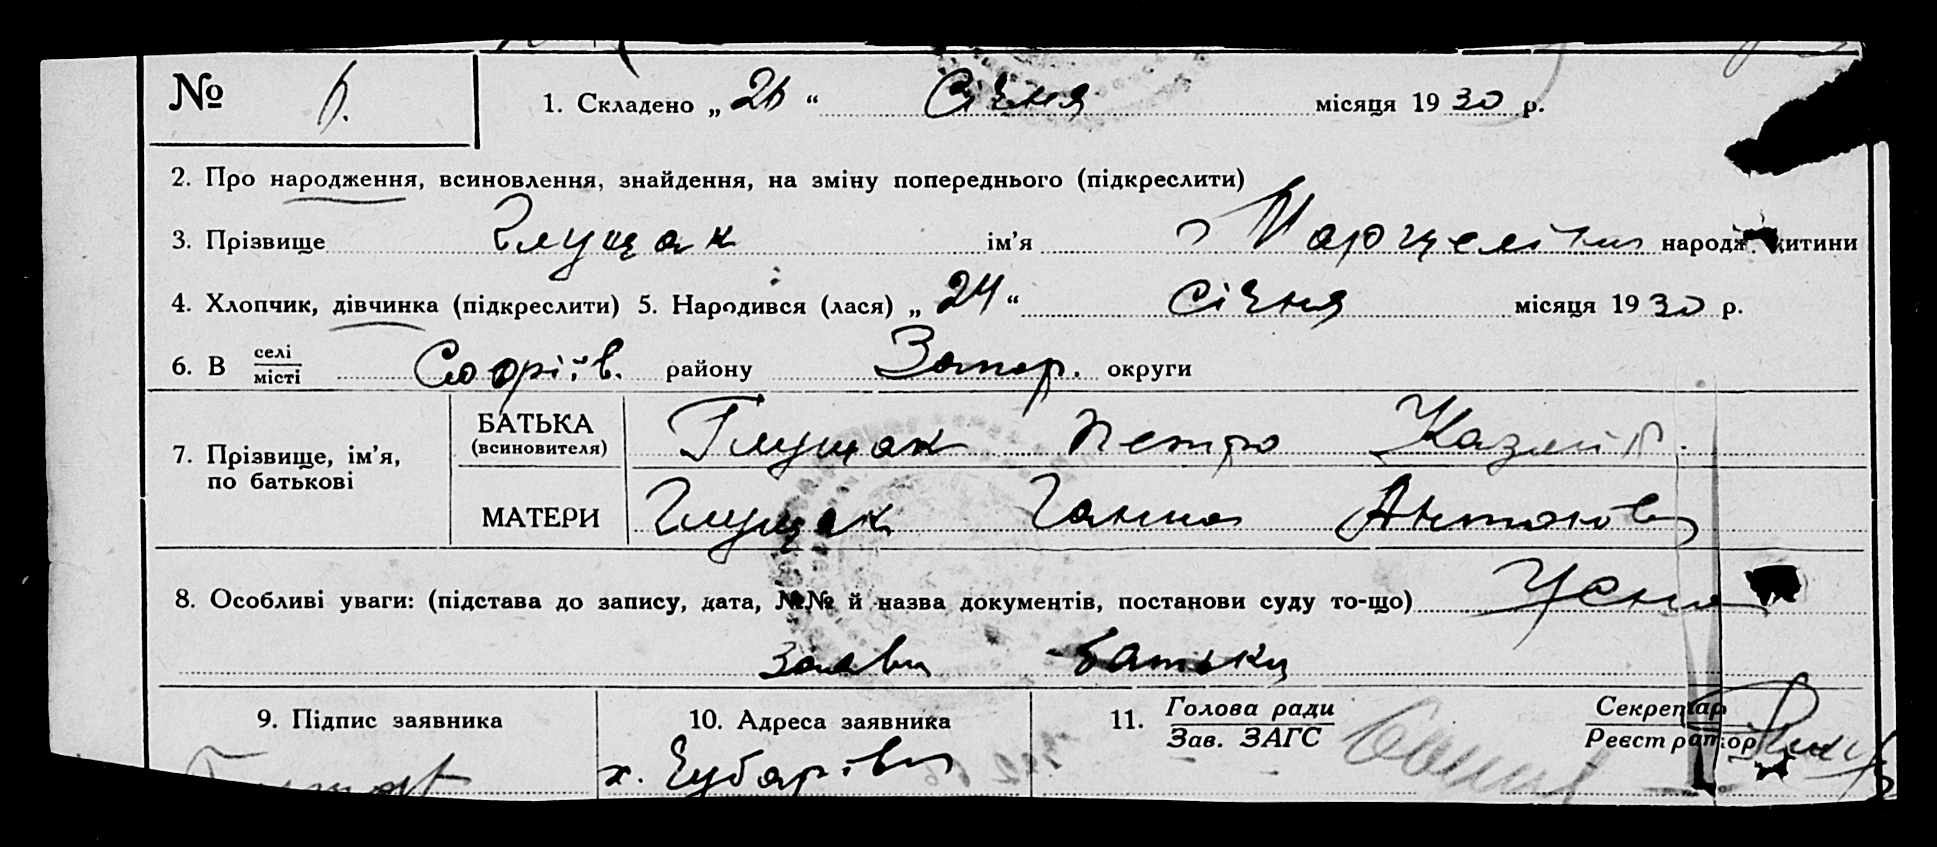 № 6. 1. Складено „ 26 “ Січня місяця 19 30 р.
2. Про народження, всиновлення, знайдення, на зміну попереднього (підкреслити)
3. Прізвище Глущак ім’я Марцеліна народж. дитини
4. Хлопчик, дівчинка (підкреслити) 5. Народився (лася) „ 24 “ Січня місяця 19 30 р.
6. В селі місті Софіїв. району Запор. округи
7. Прізвище, ім’я, по батькові
БАТЬКА (всиновителя) Глущак Петро
МАТЕРИ Глущак Ганна Антонов
8. Особливі уваги: (підстава до запису, дата, №№ й назва документів, постанови суду то-що) Усна
заява батька
9. Підпис заявника 10. Адреса заявника 11. Голова ради Зав. ЗАГС Секретар Реєстратор
х.